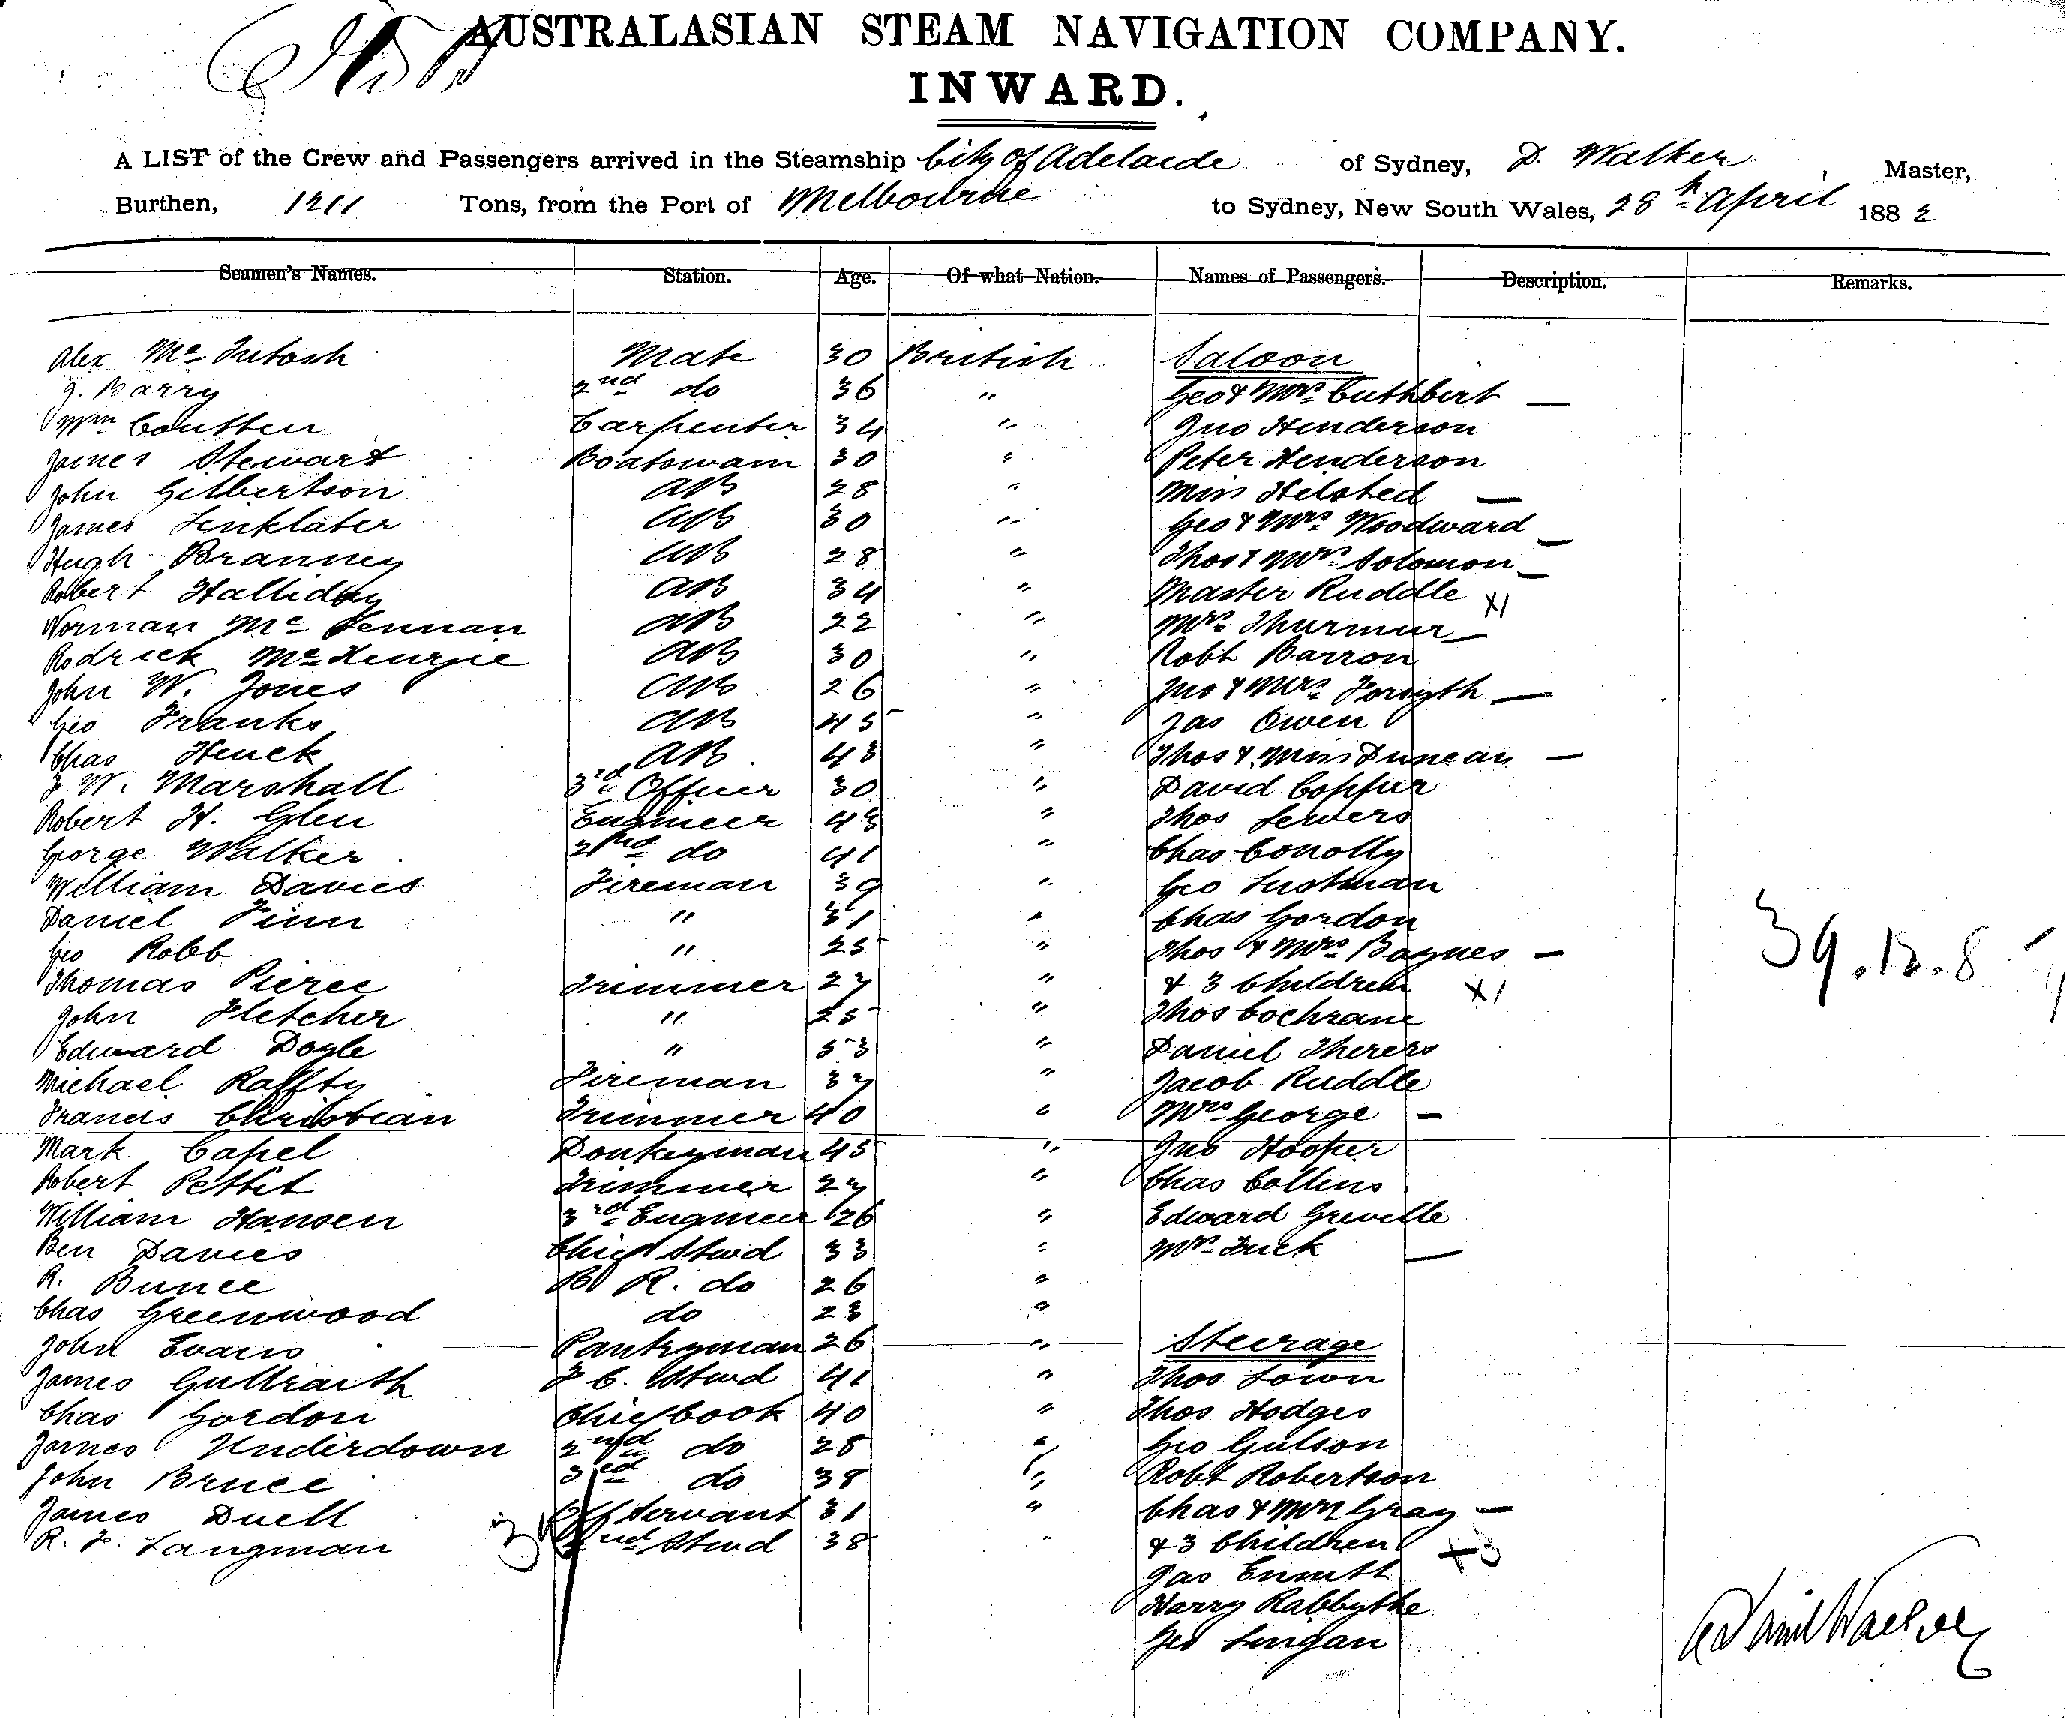 AUSTRALASIAN STEAM NAVIGATION COMPANY.
INWARD.
A LIST of the Crew and Passengers arrived in the Steamship City of Adelaide of Sydney, D. Walker Master,
Burthen, 1211 Tons, from the Port of Melbourne to Sydney, New South Wales, 28th April 1882
Seamen's Names. Station. Age. Of what Nation. Names of Passengers. Description. Remarks.
Alex Mc Intosh Mate 30 British Saloon
J. Barry 2nd do 36 " Geo & Mrs Cuthbert —
Wm Coutten Carpenter 34 " Jno Henderson
James Stewart Boatswain 30 " Peter Henderson
John Gilbertson AB 28 " Miss Hilsted —
James Linklater AB 30 " Geo & Mrs Woodward —
Hugh Branney AB 28 " Thos & Mrs Solomon —
Robert Halliday AB 34 " Master Ruddle X1
Norman Mc Lennan AB 22 " Mrs Thurmur —
Rodrick McKenzie AB 30 " Robt Barron
John W. Jones AB 26 " Jno & Mrs Forsyth —
Geo Franks AB 45 " Jas Owen
Chas Henck AB 43 " Thos & Miss Duncan —
J. W. Marshall 3rd Officer 30 " David Copper
Robert H. Glen Engineer 43 " Thos Sewers
George Walker 2nd do 41 " Chas Conolly
William Davies Fireman 39 " Geo Lustman
Daniel Finn " 31 " Chas Gordon
Geo Robb " 25 " Thos & Mrs Baynes —
Thomas Pierce Trimmer 27 " & 3 Children X1
John Fletcher " 25 " Thos Cochrane
Edward Doyle " 53 " Daniel Therers
Michael Raffty Fireman 37 " Jacob Ruddle
Francis Christian Trimmer 40 " Mrs George —
Mark Capel Donkeyman 45 " Jno Hooper
Robert Pettit Trimmer 27 " Chas Collins
William Hansen 3rd Engineer 26 " Edward Greville
Ben Davies Chief Stwd 33 " Mrs Tuck —
R. Bunce B R. do 26 "
Chas Greenwood do 23 "
John Evans Pantryman 26 " Steerage
James Gullraith F C. Stwd 41 " Thos Town
Chas Gordon Chief Cook 40 " Thos Hodges
James Underdown 2nd do 28 " Geo Gulson
John Bruce 3rd do 38 " Robt Robertson
James Duell Off Servant 31 " Chas & Mrs Gray —
R. F. Langman 2nd Stwd 38 " & 3 Children X3
Jas Ennitt
Harry Rabbythe
Geo Lingan